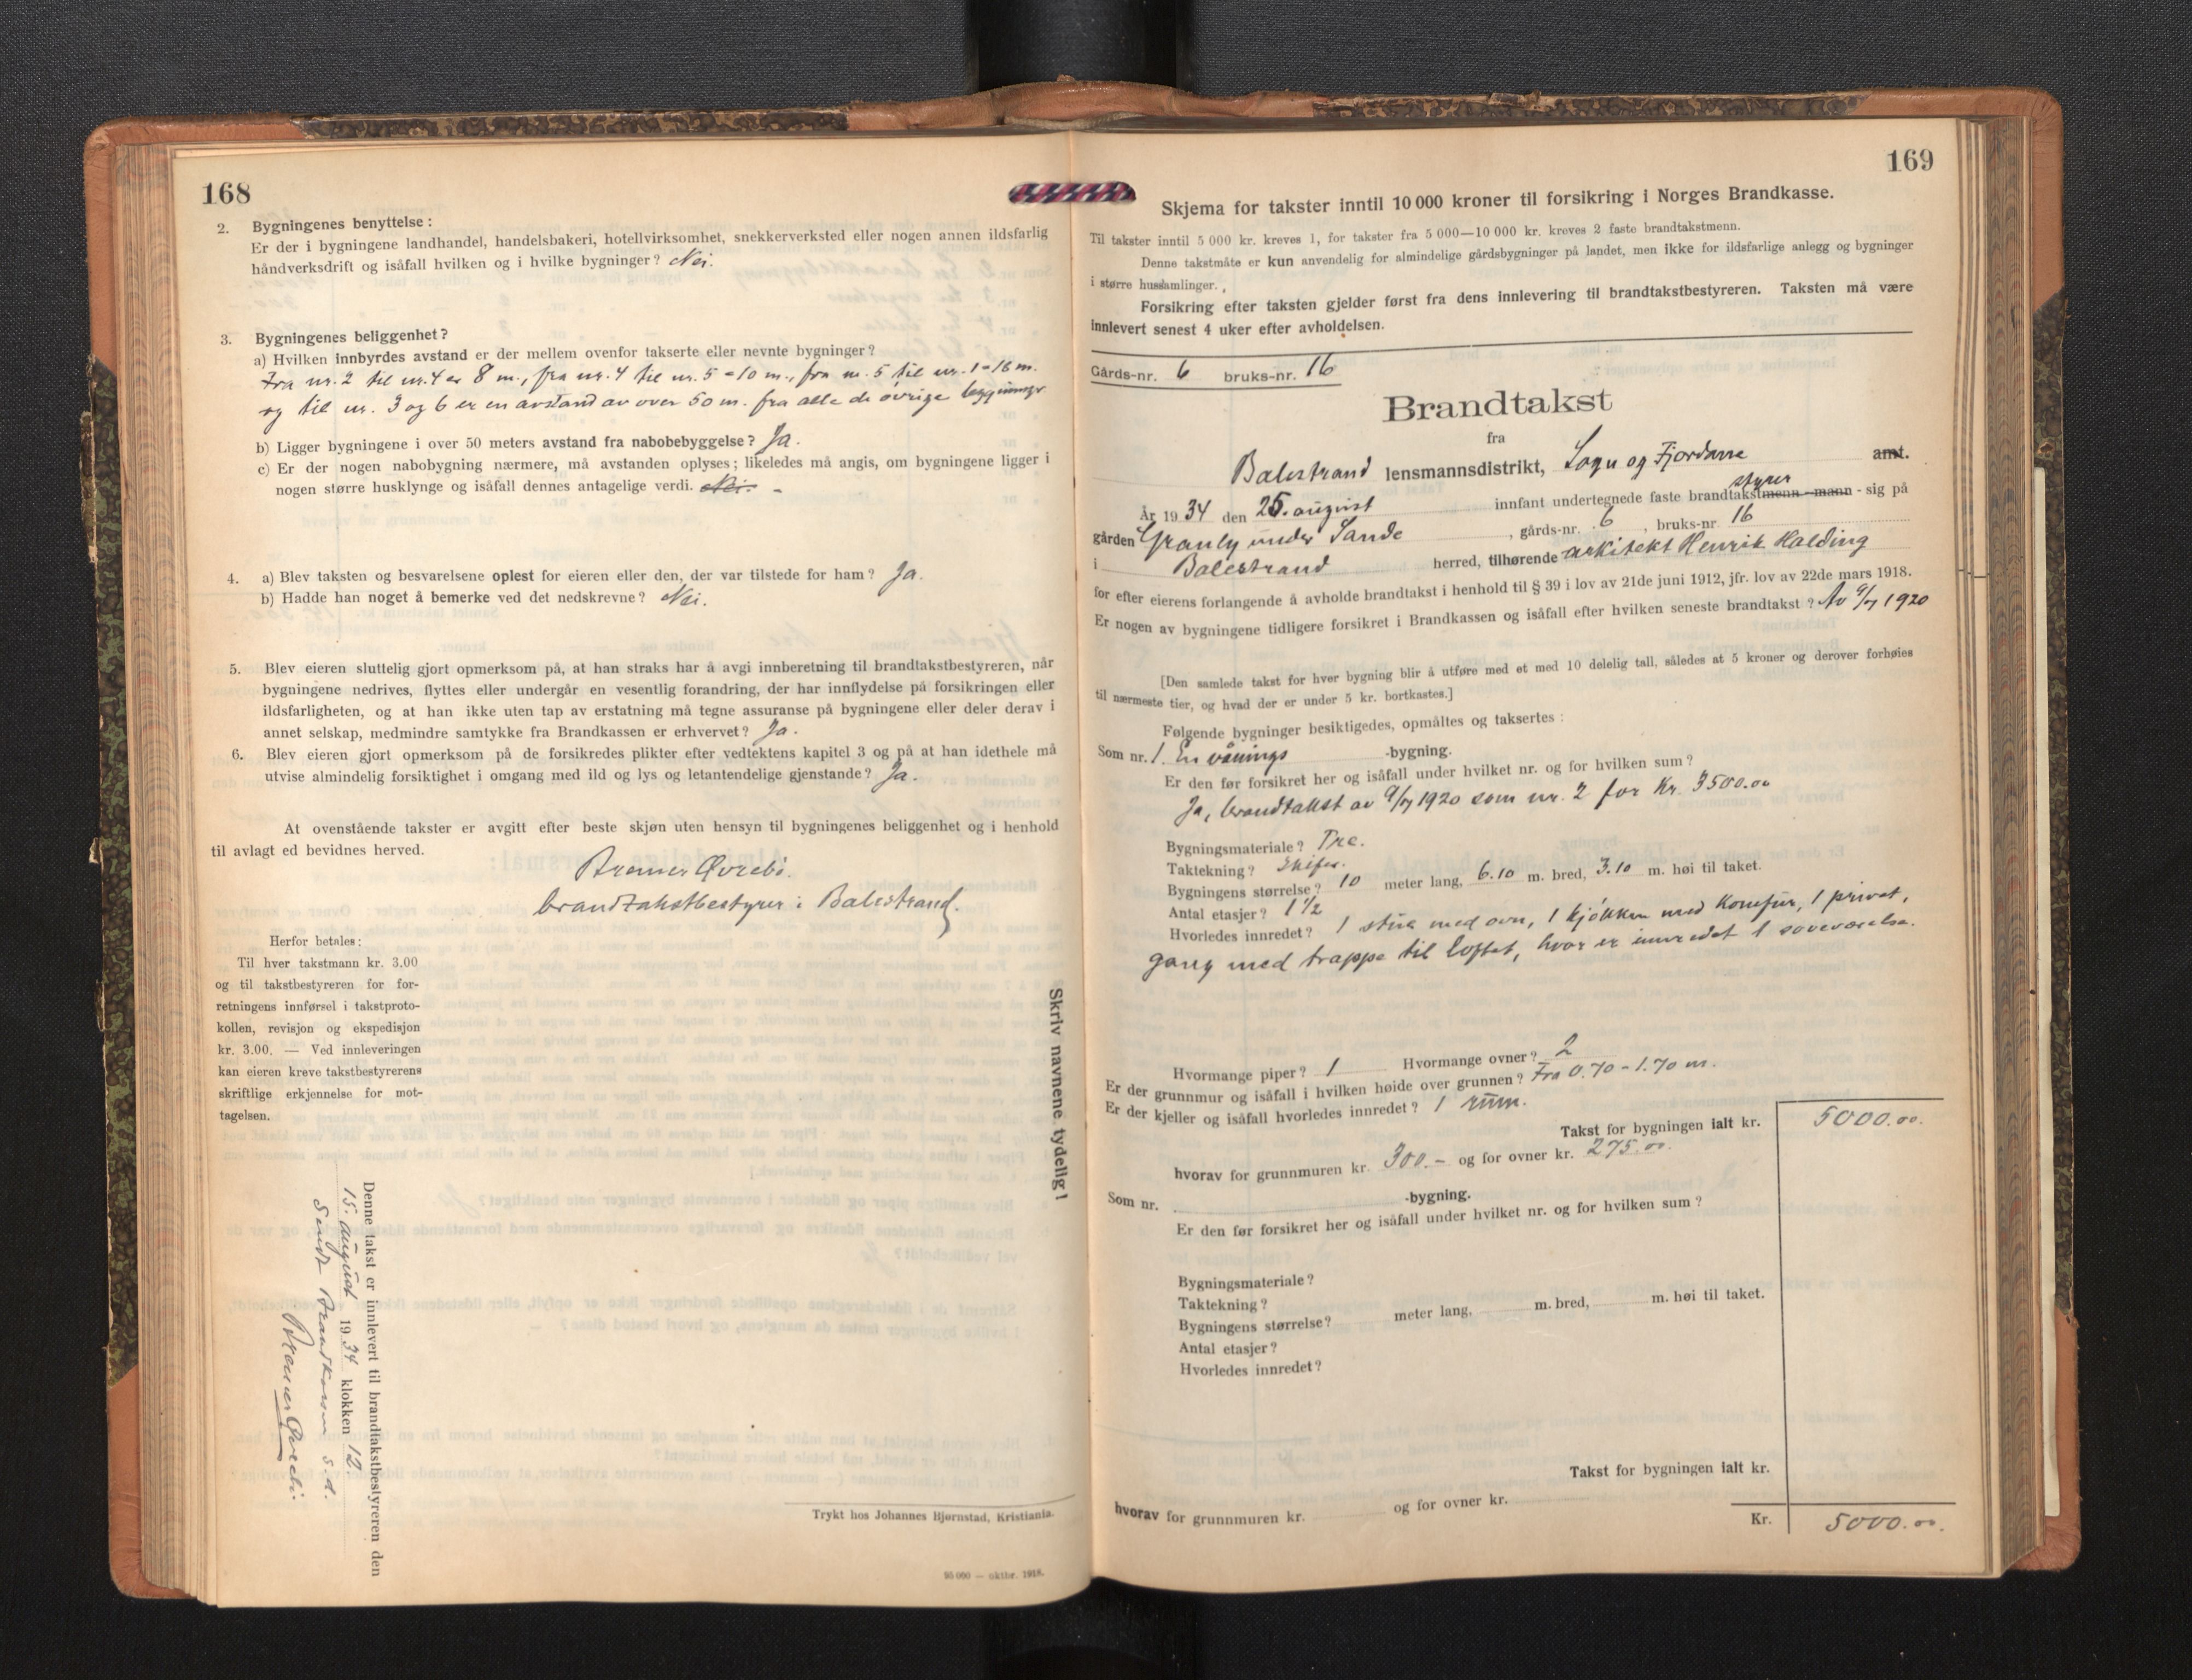 168
2. Bygningenes benyttelse:
Er der i bygningene landhandel, handelsbakeri, hotellvirksomhet, snekkerverksted eller nogen annen ildsfarlig
håndverksdrift og isåfall hvilken og i hvilke bygninger? Nei.
3. Bygningenes beliggenhet?
a) Hvilken innbyrdes avstand er der mellem ovenfor takserte eller nevnte bygninger?
Fra nr. 2 til nr. 4 er 8 m., fra nr. 4 til nr. 5 = 10 m., fra nr. 5 til nr. 1 = 16 m.
og til nr. 3 og 6 er en avstand av over 50 m. fra alle de øvrige bygninger
b) Ligger bygningene i over 50 meters avstand fra nabobebyggelse? Ja.
c) Er der nogen nabobygning nærmere, må avstanden oplyses; likeledes må angis, om bygningene ligger i
nogen større husklynge og isåfall dennes antagelige verdi. Nei. -
4. a) Blev taksten og besvarelsene oplest for eieren eller den, der var tilstede for ham? Ja.
b) Hadde han noget å bemerke ved det nedskrevne? Nei.
5. Blev eieren sluttelig gjort opmerksom på, at han straks har å avgi innberetning til brandtakstbestyreren, når
bygningene nedrives, flyttes eller undergår en vesentlig forandring, der har innflydelse på forsikringen eller
ildsfarligheten, og at han ikke uten tap av erstatning må tegne assuranse på bygningene eller deler derav i
annet selskap, medmindre samtykke fra Brandkassen er erhvervet? Ja.
6. Blev eieren gjort opmerksom på de forsikredes plikter efter vedtektens kapitel 3 og på at han idethele må
utvise almindelig forsiktighet i omgang med ild og lys og letantendelige gjenstande? Ja.
At ovenstående takster er avgitt efter beste skjøn uten hensyn til bygningenes beliggenhet og i henhold
til avlagt ed bevidnes herved.
Bremer Øvrebø.
brandtakstbestyrer i Balestrand.
Herfor betales:
Til hver takstmann kr. 3.00
og til takstbestyreren for for-
retningens innførsel i takstproto-
kollen, revisjon og ekspedisjon
kr. 3.00. — Ved innleveringen
kan eieren kreve takstbestyrerens
skriftlige erkjennelse for mot-
tagelsen.
Skriv navnene tydelig!
Denne takst er innlevert til brandtakstbestyreren den
15. august 1934 klokken 12.
Sendt Brandkassen s.d.
Bremer Øvrebø.
Trykt hos Johannes Bjørnstad, Kristiania.
50 000 — oktbr. 1918.
169
Skjema for takster inntil 10 000 kroner til forsikring i Norges Brandkasse.
Til takster inntil 5 000 kr. kreves 1, for takster fra 5 000—10 000 kr. kreves 2 faste brandtakstmenn.
Denne takstmåte er kun anvendelig for almindelige gårdsbygninger på landet, men ikke for ildsfarlige anlegg og bygninger
i større hussamlinger.
Forsikring efter taksten gjelder først fra dens innlevering til brandtakstbestyreren. Taksten må være
innlevert senest 4 uker efter avholdelsen.
Gårds-nr. 6 bruks-nr. 16
Brandtakst
fra
Balestrand lensmannsdistrikt, Sogn og Fjordane amt.
År 1934 den 25. august innfant undertegnede faste brandtakstmenn -mann- styrer sig på
gården Granly under Sande, gårds-nr. 6, bruks-nr. 16
i Balestrand herred, tilhørende arkitekt Henrik Halding
for efter eierens forlangende å avholde brandtakst i henhold til § 39 i lov av 21de juni 1912, jfr. lov av 22de mars 1918.
Er nogen av bygningene tidligere forsikret i Brandkassen og isåfall efter hvilken seneste brandtakst? Av 9/7 1920
[Den samlede takst for hver bygning blir å utføre med et med 10 delelig tall, således at 5 kroner og derover forhøies
til nærmeste tier, og hvad der er under 5 kr. bortkastes.]
Følgende bygninger besiktigedes, opmåltes og taksertes:
Som nr. 1. En vånings -bygning.
Er den før forsikret her og isåfall under hvilket nr. og for hvilken sum?
Ja, brandtakst av 9/7 1920 som nr. 2 for kr. 3500.00
Bygningsmateriale? Tre.
Taktekning? Skifer.
Bygningens størrelse? 10 meter lang, 6.10 m. bred, 3.10 m. høi til taket.
Antal etasjer? 1 1/2
Hvorledes innredet? 1 stue med ovn, 1 kjøkken med komfur, 1 privet,
gang med trappe til loftet, hvor er innredet 1 soveværelse.
Hvormange piper? 1 Hvormange ovner? 2
Er der grunnmur og isåfall i hvilken høide over grunnen? Fra 0.70 - 1.70 m.
Er der kjeller og isåfall hvorledes innredet? 1 rum.
Takst for bygningen ialt kr. 5000.00.
hvorav for grunnmuren kr. 300.- og for ovner kr. 275.00.
Som nr. -bygning.
Er den før forsikret her og isåfall under hvilket nr. og for hvilken sum?
Bygningsmateriale?
Taktekning?
Bygningens størrelse? meter lang, m. bred, m. høi til taket.
Antal etasjer?
Hvorledes innredet?
Takst for bygningen ialt kr.
hvorav for grunnmuren kr. og for ovner kr.
Kr. 5000.00.